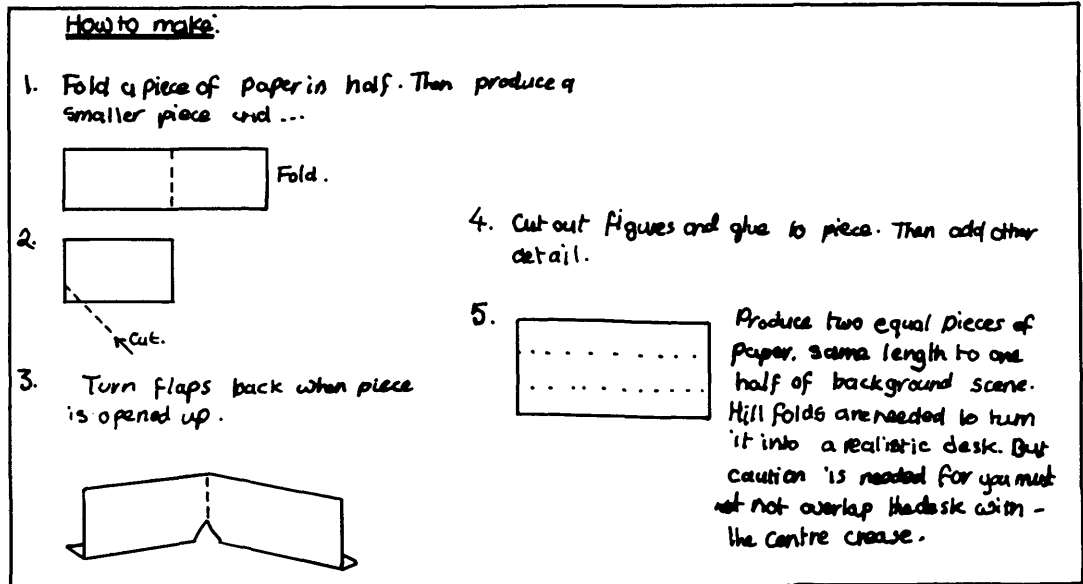 How to make:
1. Fold a piece of paper in half. Then produce a
smaller piece and ...
Fold.
2.
Cut.
3. Turn flaps back when piece
is opened up.
4. Cut out figures and glue to piece. Then add other
detail.
5.
Produce two equal pieces of
paper, same length to one
half of background scene.
Hill folds are needed to turn
it into a realistic desk. But
caution is needed for you must
not overlap the desk with -
the centre crease.